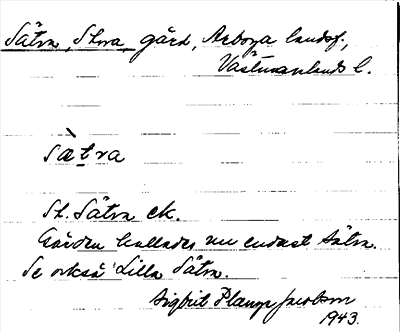 Sätra, Stora, gård, Arboga landsf.,
Västmanlands l.
sæ̀tra
St. Sätra ek.
Gården kallades nu endast Sätra.
Se också Lilla Sätra.
Sigbrit Plænge Jacobson
1943.